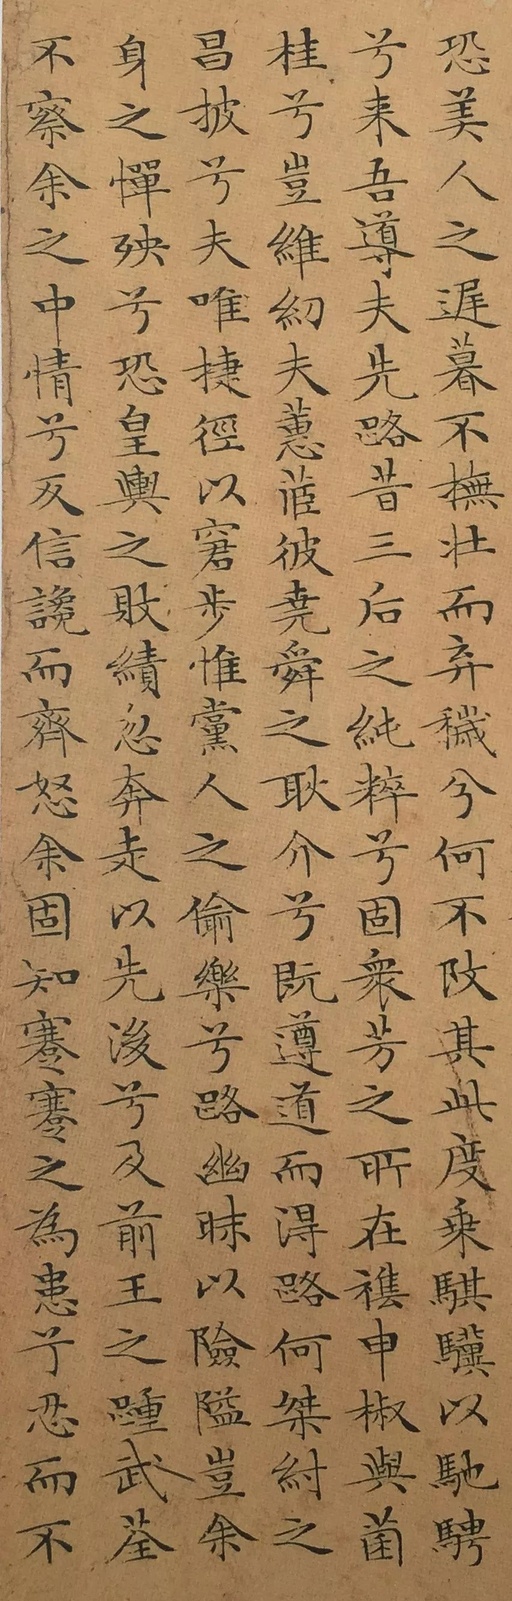 恐美人之遲暮不撫壯而弃穢兮何不改其此度乗騏驥以馳騁
兮来吾導夫先路昔三后之純粹兮固衆芳之所在雜申椒與菌
桂兮豈維紉夫蕙茝彼堯舜之耿介兮既遵道而得路何桀紂之
昌披兮夫唯捷徑以窘步惟黨人之偷樂兮路幽昧以險隘豈余
身之憚殃兮恐皇輿之敗績忽奔走以先後兮及前王之踵武荃
不察余之中情兮反信讒而齊怒余固知謇謇之為患兮忍而不